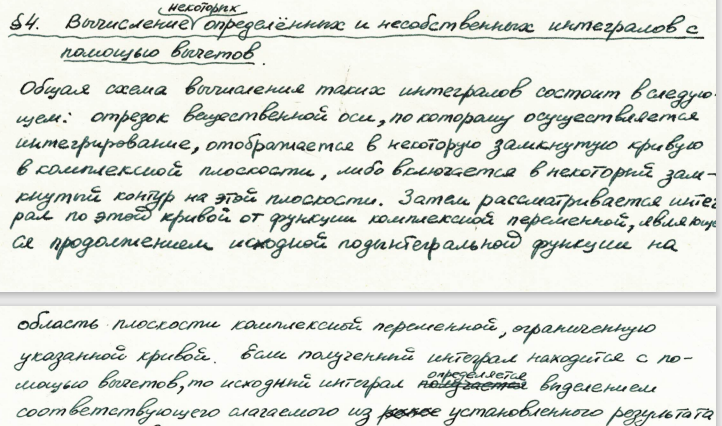 некоторых
§4. Вычисление определённых и несобственных интегралов с
помощью вычетов.
Общая схема вычисления таких интегралов состоит в следую-
щем: отрезок вещественной оси, по которому осуществляется
интегрирование, отображается в некоторую замкнутую кривую
в комплексной плоскости, либо включается в некоторый зам-
кнутый контур на этой плоскости. Затем рассматривается интег
рал по этой кривой от функции комплексной переменной, являюще
ся продолжением исходной подынтегральной функции на
область плоскости комплексной переменной, ограниченную
указанной кривой. Если полученный интеграл находится с по-
определяется
мощью вычетов, то исходный интеграл получается выделением
соответствующего слагаемого из установленного результата